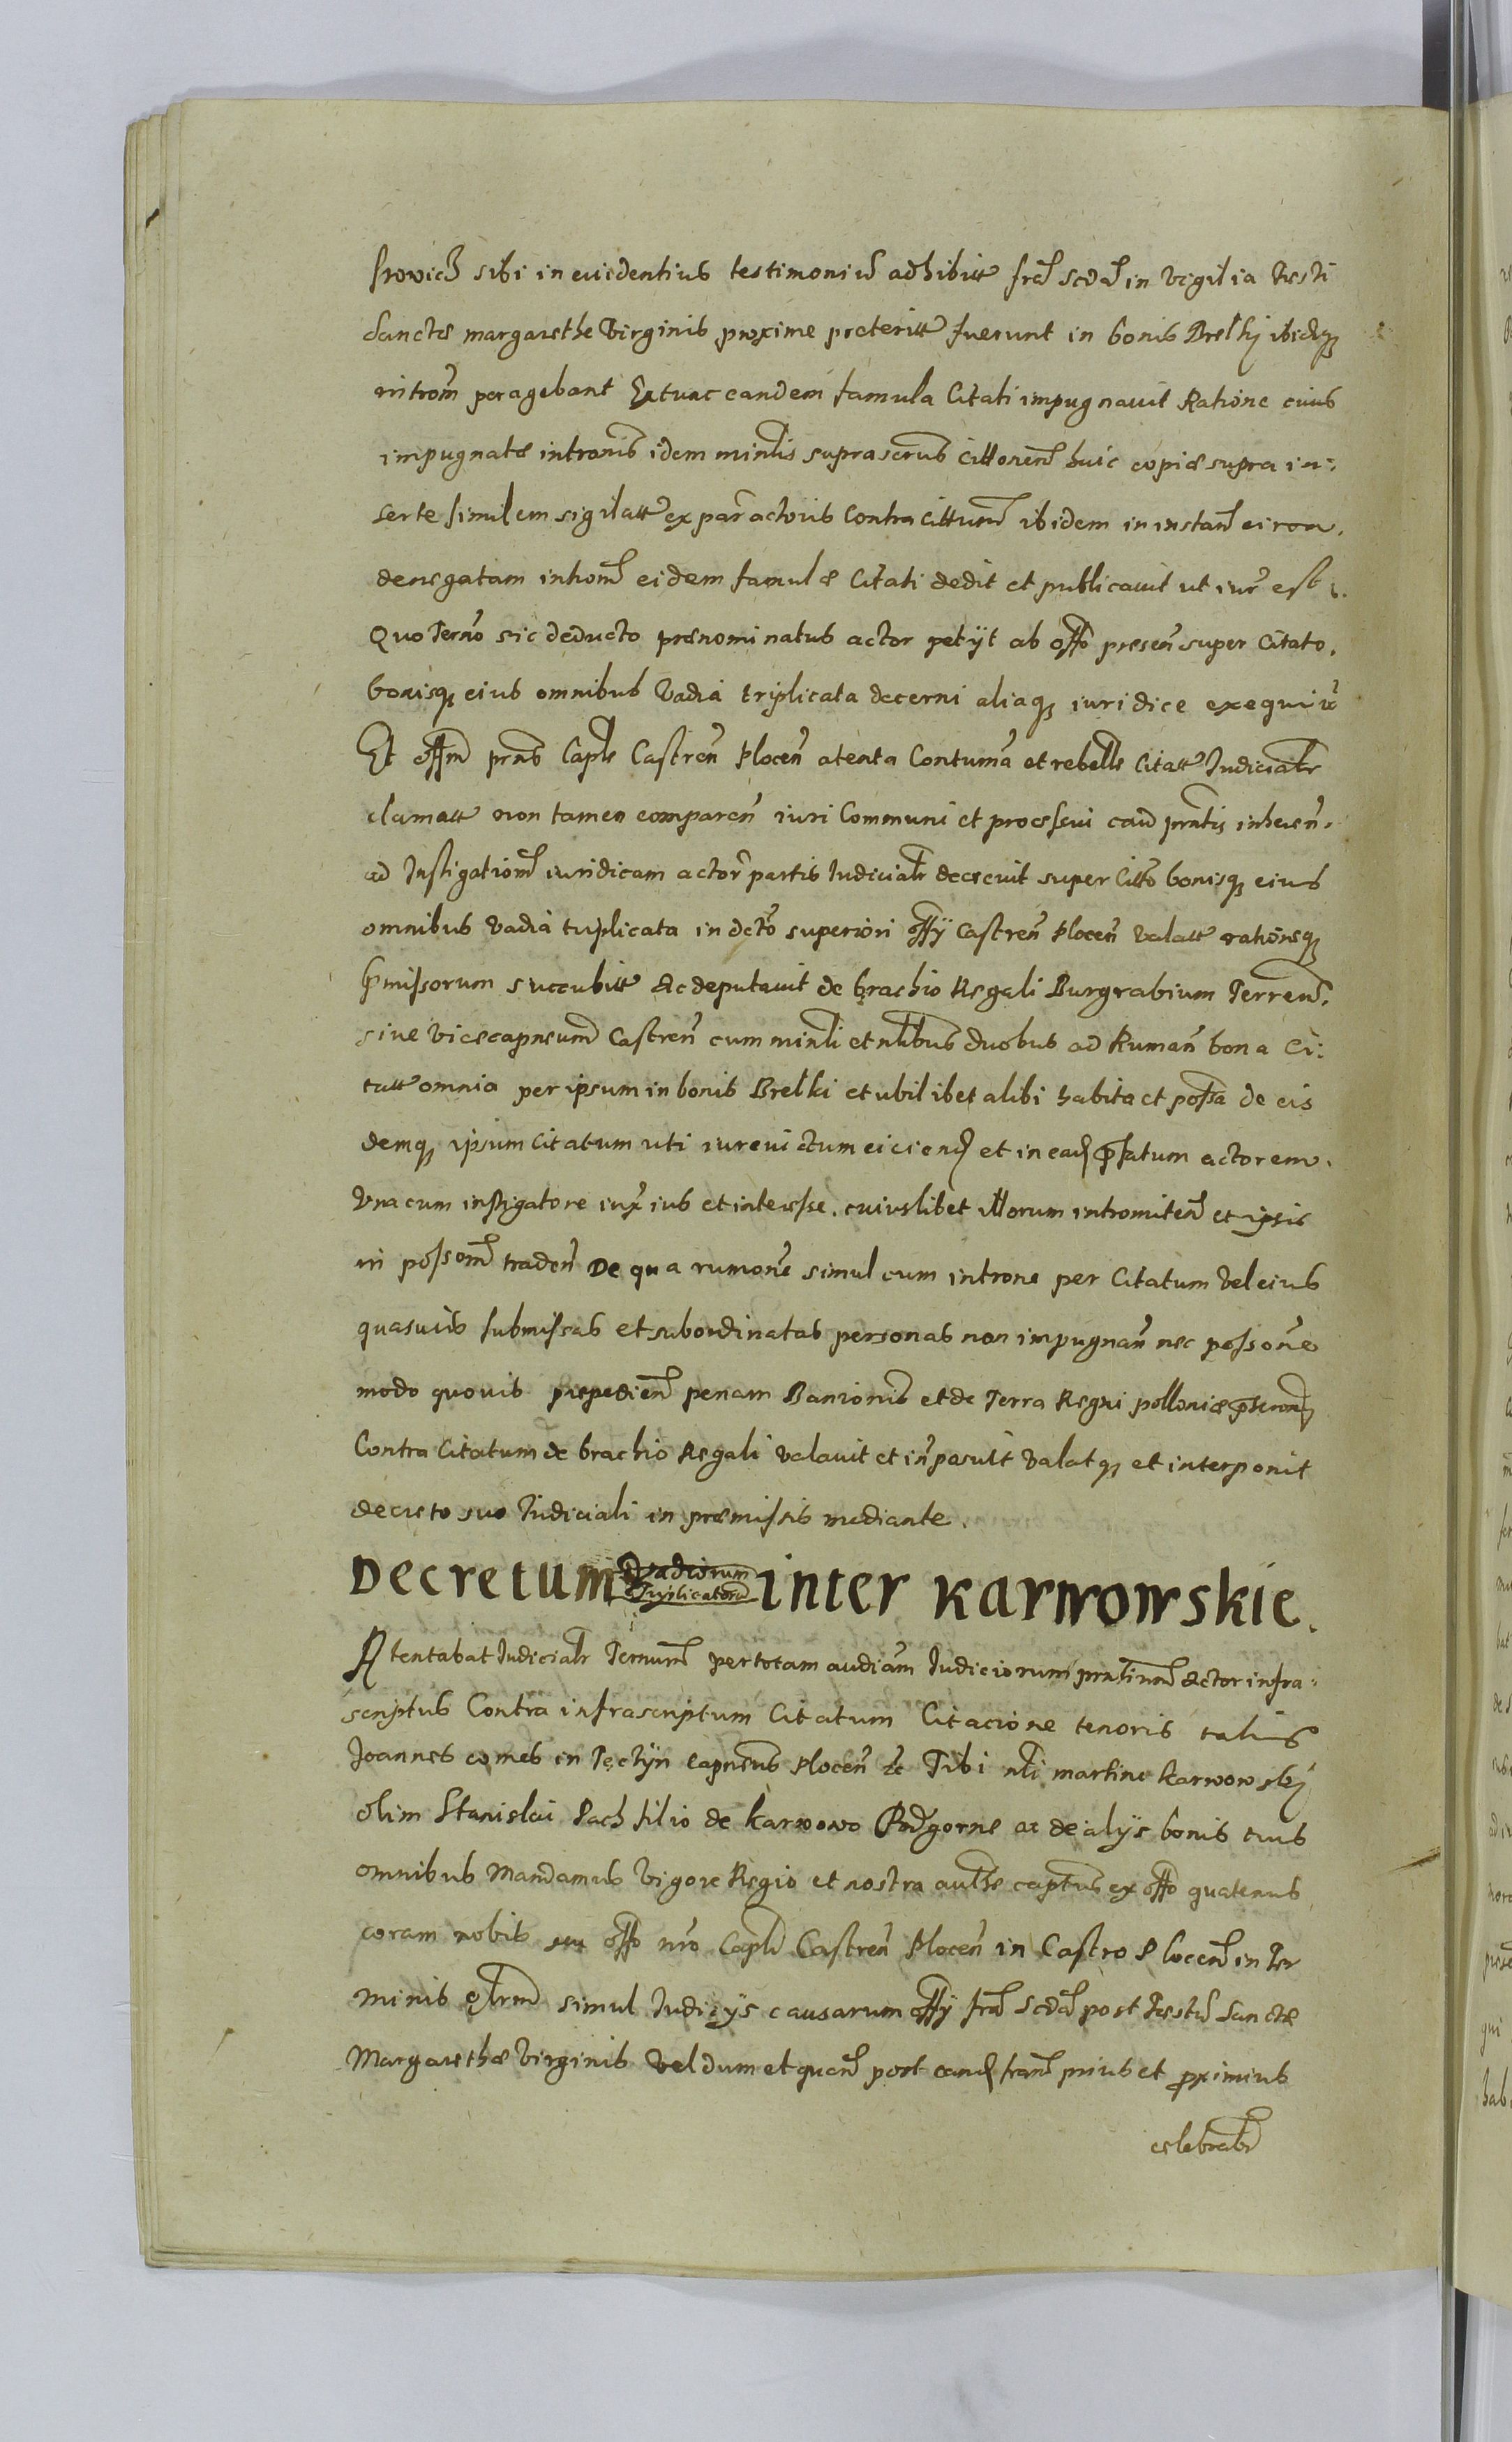 sibi in evidentius testimoniũ adhibitt frã scdã in vigilia Festi
Sanctæ margarethe Virginis proxime preteritt fuerunt in bonis Brelkj ibidqȝ
introm̃ peragebant Extunc eandem famula Citati impugnavit Ratione cuius
impugnatæ intronis idem minlis suprascrus huic copiæ supra in:
serte similem sigilatt ex par̃ actoris contra cittum̃ ibidem in instanĩ
denegatam eidem famulæ Citati dedit et publicavit ut iur̃ est
Quo Termõ sic deducto prænominatus actor petÿt ab offõ presen̄ super Citato.
bonisqȝ eius omnibus vadia triplicata decerni aliaqȝ iuridice exequi
Et offm̃ prns Capl̃e Castren̄ Plocen̄ atenta Contum̃a et rebelle Citatt Judicialr̃
clamatt non tamen comparen̄ iuri Communi et processui caũ prntis inheren̄.
ad Instigationẽ iuridicam actor̃ partis Judicialr̃ decrevit super Citto bonisqȝ eius
omnibus vadia triplicata in dcto superiori offÿ Castren̄ Plocen̄ valatt rationeqȝ
p̃missorum succubitt Ac deputavit de brachio Regali Burgrabium Terren̄.
sive vicecapneum̃ Castren̄ cum minli et nlibus duobus ad Ruman̄ bona Ci:
tatt omnia per ipsum in bonis Brelki et ubilibet alibi habita et possa de eis
demqȝ ipsum citatum uti iurevictum eiciend et in ead p̃fatum actorem.
Una cum instigatore iux̃ ius et interesse cuiuslibet illorum intromiten̄ et ipsis
in possom̃ traden̄ De qua rumone simul cum introne per Citatum vel eius
quasvis submissas et subordinatas personas non impugnan̄ nec possone
modo quovis prepedien̄ penam Banionis et de Terra Regni polloniæ
Contra Citatum de brachio Regali valavit et inpasuit valatqȝ et interponit
decreto suo Judiciali in præmissis mediante.
Decretum Vadiorum Triplicatorũ inter Karwowskie.
Atentabat Judicialr̃ Termum̃ per totam audiam̃ Judiciorum Actor infra:
scriptus Contra infrascriptum Citatum Citacione tenoris talis
Joannes comes in Tęctÿn Capneus Plocen̄ ꝛc Tibi nli martino Karwowskj
olim Stanislai Pach filio de Karwowo Podgorne ac de alÿs bonis tuis
omnibus Mandamus Vigore Regio et nostra capt̃us ex offõ quatenus
coram nobis offõ nr̃o Capli Castren̄ Plocen̄ in Castro Plocen̄ in Ter
minis simul Judicÿs causarum offÿ frã scdã post Festũ Sanctæ
Margarethæ Virginis vel dum et quan̄ post eand fram̃ prius et proximius
celebrabr̃